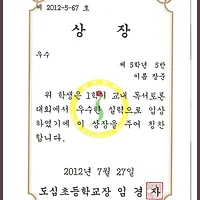 제 2012-5-67 호
상 장
우수
제 5학년 5반
이름 장준
위 학생은 1학기 교내 독서토론
대회에서 우수한 실력으로 입상
하였기에 이 상장을 주어 칭찬
합니다.
2012년 7월 27일
도심초등학교장 임 경 자